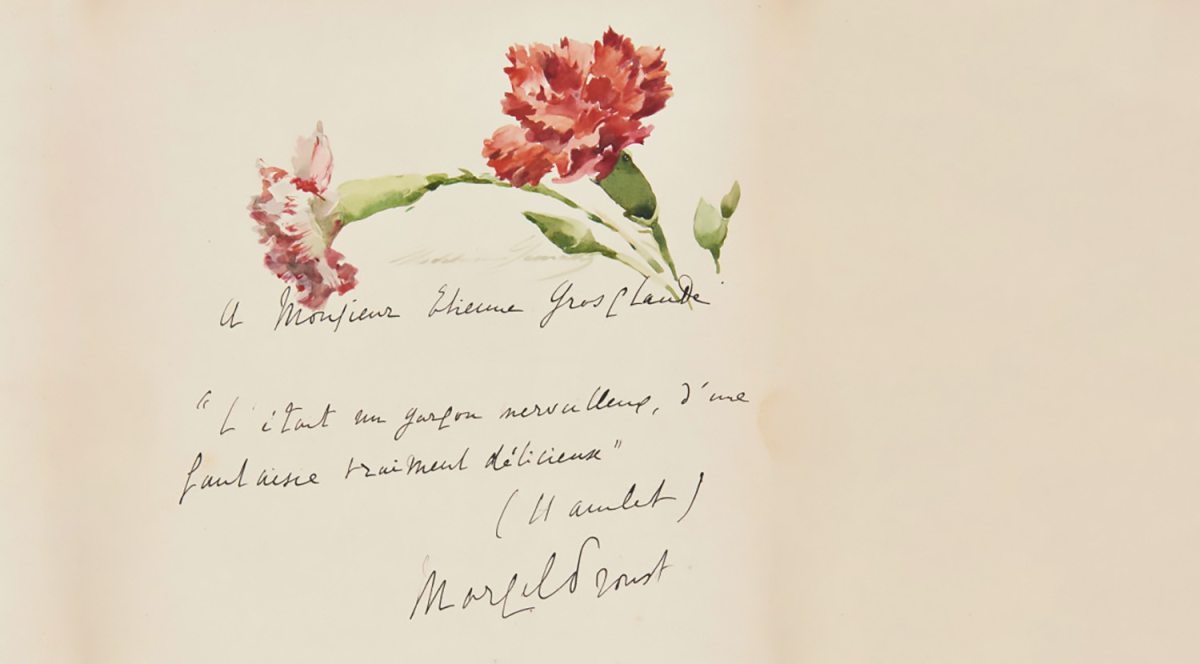 Madeleine Lemaire
A Monsieur Etienne Grosclaude
“C'était un garçon merveilleux, d'une
fantaisie vraiment délicieuse”
(Hamlet)
Marcel Proust